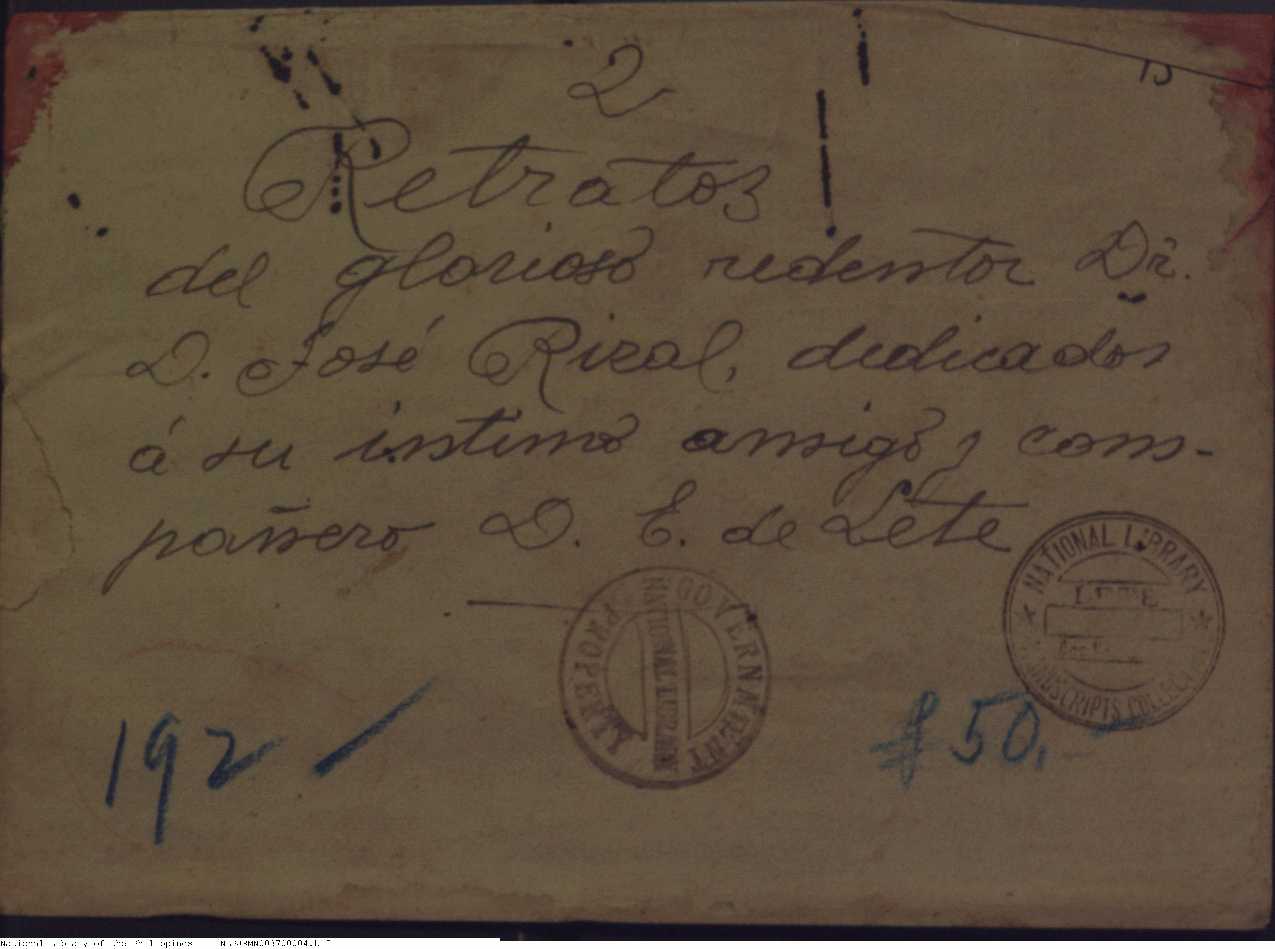 2
Retratos
del glorioso redentor Dr.
D. José Rizal, dedicados
á su íntimo amigo y com-
pañero D. E. de Lete
NATIONAL LIBRARY
MANUSCRIPTS COLLECTION
GOVERNMENT PROPERTY
NATIONAL LIBRARY
192
$50.-
National Library of the Philippines